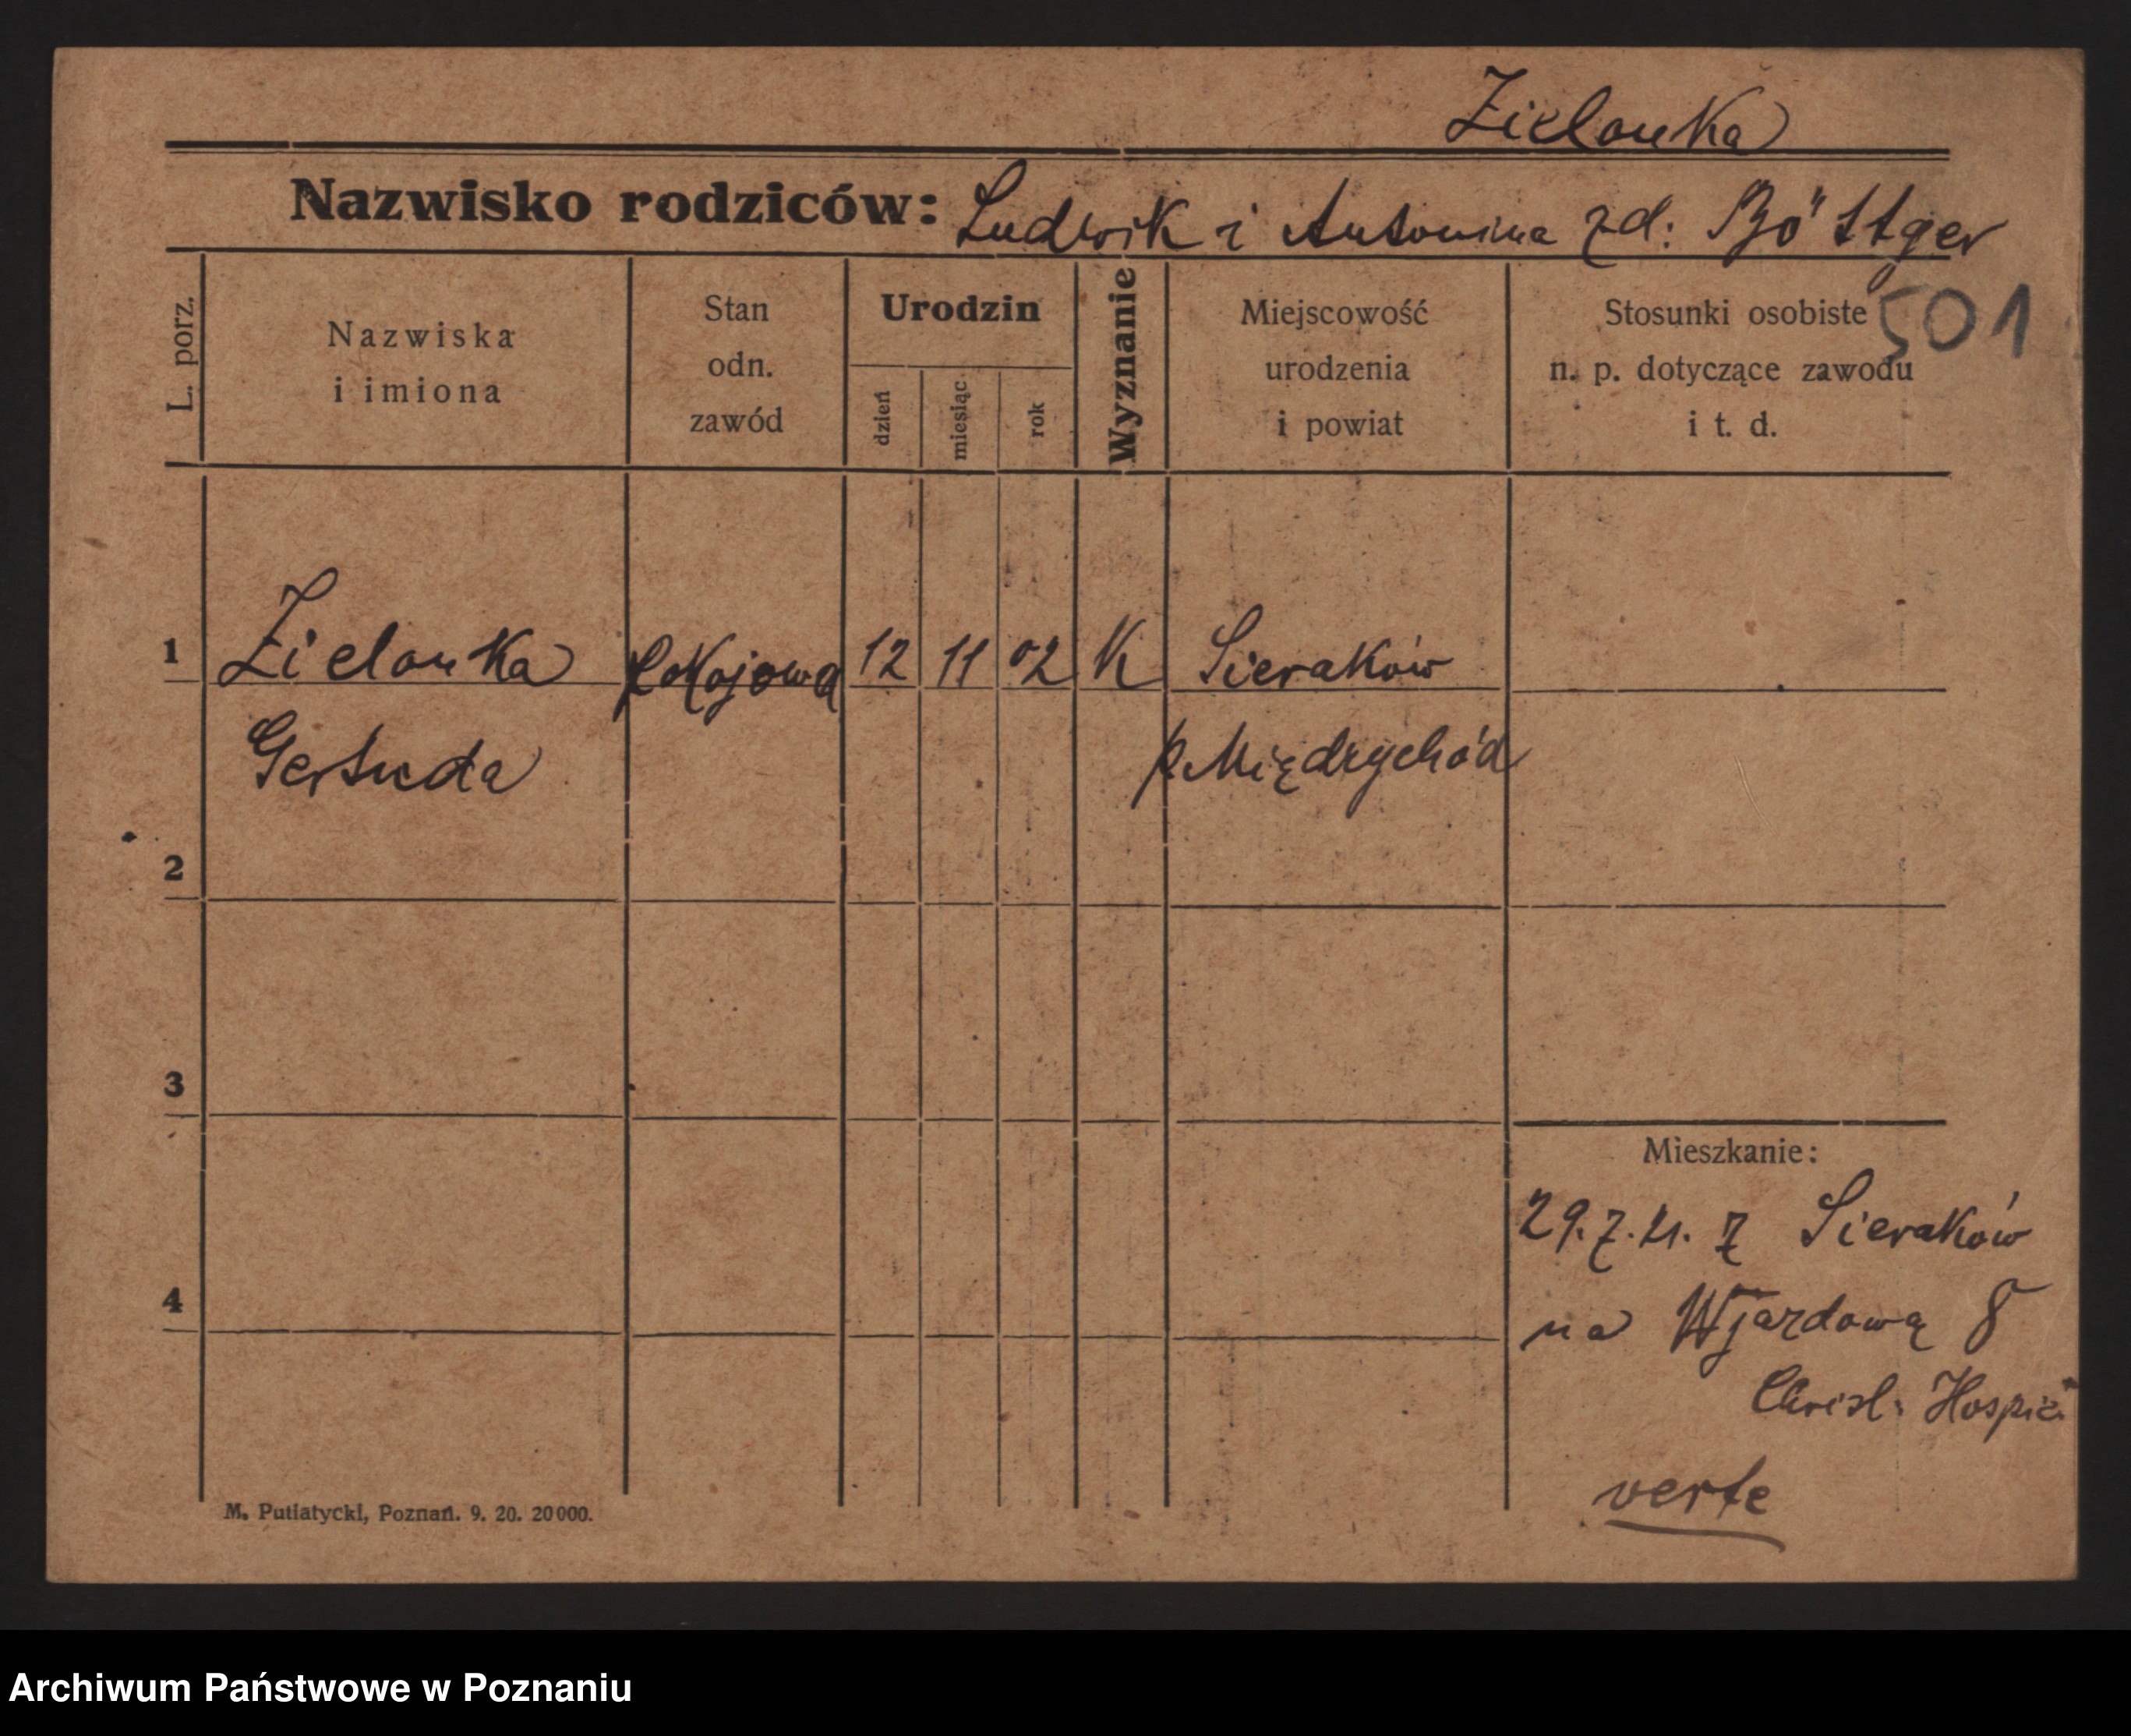 Zielonka
Nazwisko rodziców: Ludwik i Antonina zd: Böttger
501
L. porz.
Nazwiska
i imiona
Stan
odn.
zawód
Urodzin
dzień
miesiąc
rok
Wyznanie
Miejscowość
urodzenia
i powiat
Stosunki osobiste
n. p. dotyczące zawodu
i t. d.
1 Zielonka pokojowa 12 11 02 K Sieraków
Gertruda p. Międzychód
2
3
Mieszkanie:
29.7.21. z Sieraków
na Wjazdową 8
4
Christ. Hospic.
verte
M. Putiatycki, Poznań. 9. 20. 20000.
Archiwum Państwowe w Poznaniu